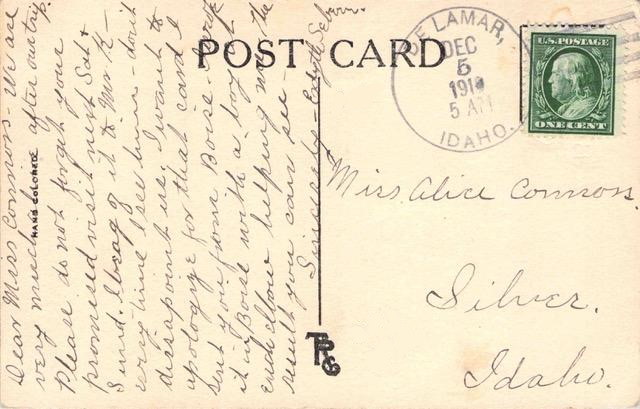 POST CARD
DE LAMAR,
DEC
5
191
5 AM
IDAHO.
U.S. POSTAGE
ONE CENT
Miss Alice Connors.
Silver.
Idaho.
HAND COLORED
Dear Miss Connors - We are
very much after outing.
Please do not forget your
promised visit next Sat &
Sund. I brag of it to Mr K -
every time I see him - don't
disappoint us. I want to
apologize for that card I
sent you from Boise. I
it in Boise with a boy at
each elbow helping me. The
result you can see -
Sincerely -